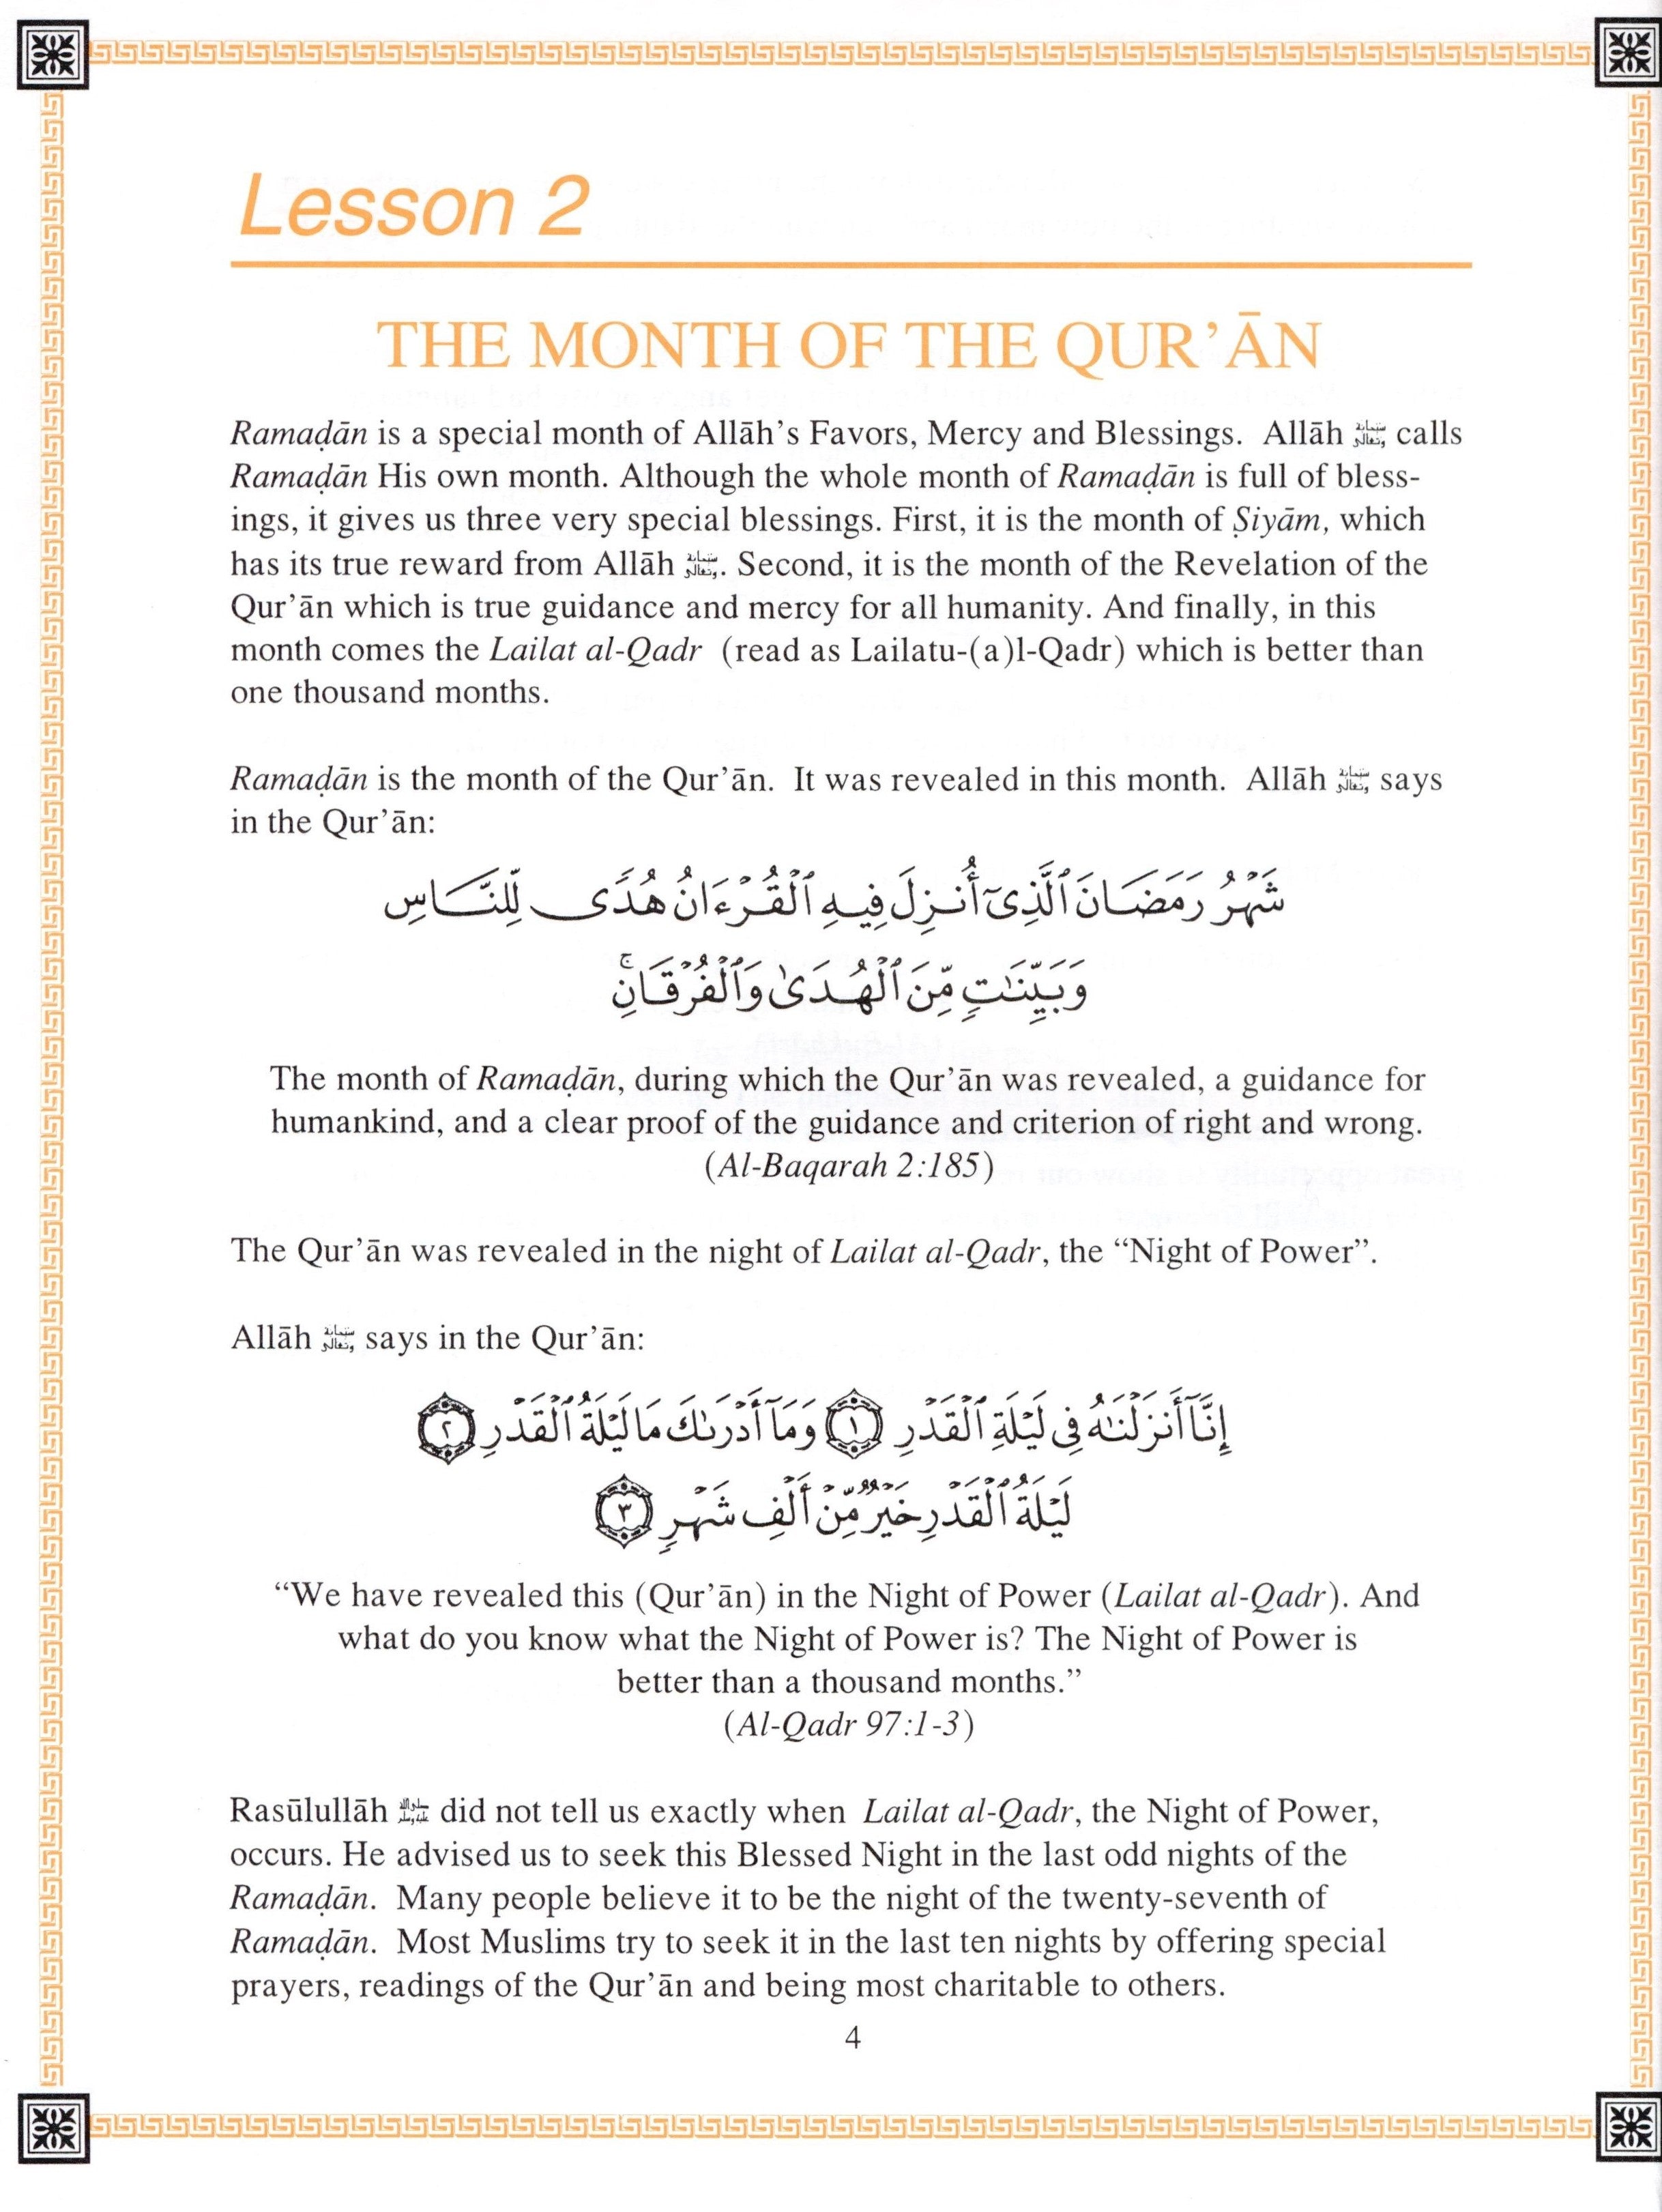 Lesson 2
THE MONTH OF THE QUR’ĀN
Ramaḍān is a special month of Allāh’s Favors, Mercy and Blessings. Allāh سبحانه وتعالى calls
Ramaḍān His own month. Although the whole month of Ramaḍān is full of bless-
ings, it gives us three very special blessings. First, it is the month of Ṣiyām, which
has its true reward from Allāh سبحانه وتعالى. Second, it is the month of the Revelation of the
Qur’ān which is true guidance and mercy for all humanity. And finally, in this
month comes the Lailat al-Qadr (read as Lailatu-(a)l-Qadr) which is better than
one thousand months.
Ramaḍān is the month of the Qur’ān. It was revealed in this month. Allāh سبحانه وتعالى says
in the Qur’ān:
شَهْرُ رَمَضَانَ ٱلَّذِىٓ أُنزِلَ فِيهِ ٱلْقُرْءَانُ هُدًى لِّلنَّاسِ
وَبَيِّنَٰتٍ مِّنَ ٱلْهُدَىٰ وَٱلْفُرْقَانِ ۚ
The month of Ramaḍān, during which the Qur’ān was revealed, a guidance for
humankind, and a clear proof of the guidance and criterion of right and wrong.
(Al-Baqarah 2:185)
The Qur’ān was revealed in the night of Lailat al-Qadr, the “Night of Power”.
Allāh سبحانه وتعالى says in the Qur’ān:
إِنَّآ أَنزَلْنَٰهُ فِى لَيْلَةِ ٱلْقَدْرِ ١ وَمَآ أَدْرَىٰكَ مَا لَيْلَةُ ٱلْقَدْرِ ٢
لَيْلَةُ ٱلْقَدْرِ خَيْرٌ مِّنْ أَلْفِ شَهْرٍ ٣
“We have revealed this (Qur’ān) in the Night of Power (Lailat al-Qadr). And
what do you know what the Night of Power is? The Night of Power is
better than a thousand months.”
(Al-Qadr 97:1-3)
Rasūlullāh صلى الله عليه وسلم did not tell us exactly when Lailat al-Qadr, the Night of Power,
occurs. He advised us to seek this Blessed Night in the last odd nights of the
Ramaḍān. Many people believe it to be the night of the twenty-seventh of
Ramaḍān. Most Muslims try to seek it in the last ten nights by offering special
prayers, readings of the Qur’ān and being most charitable to others.
4